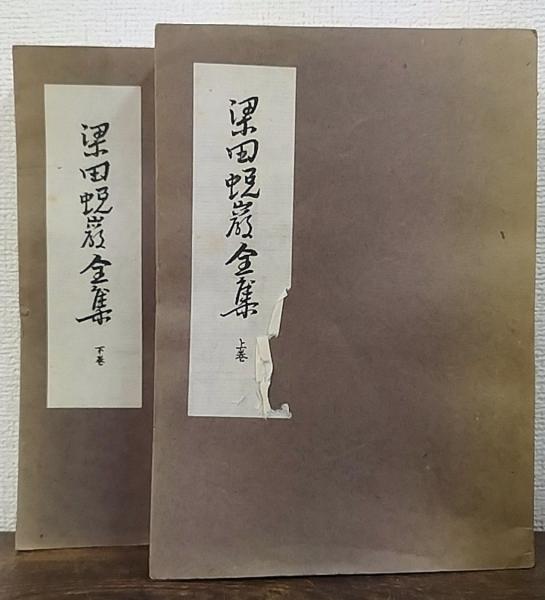 梁田蛻巖全集
上巻
梁田蛻巖全集
下巻